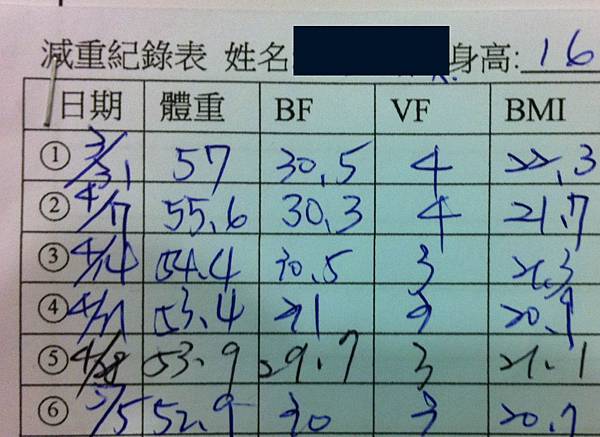 減重紀錄表 姓名 身高: 16
日期 體重 BF VF BMI
① 3/31 57 30.5 4 22.3
② 4/7 55.6 30.3 4 21.7
③ 4/14 54.4 30.5 3 21.3
④ 4/21 53.4 31 3 20.9
⑤ 4/28 53.9 29.7 3 21.1
⑥ 5/5 52.9 30 3 20.7